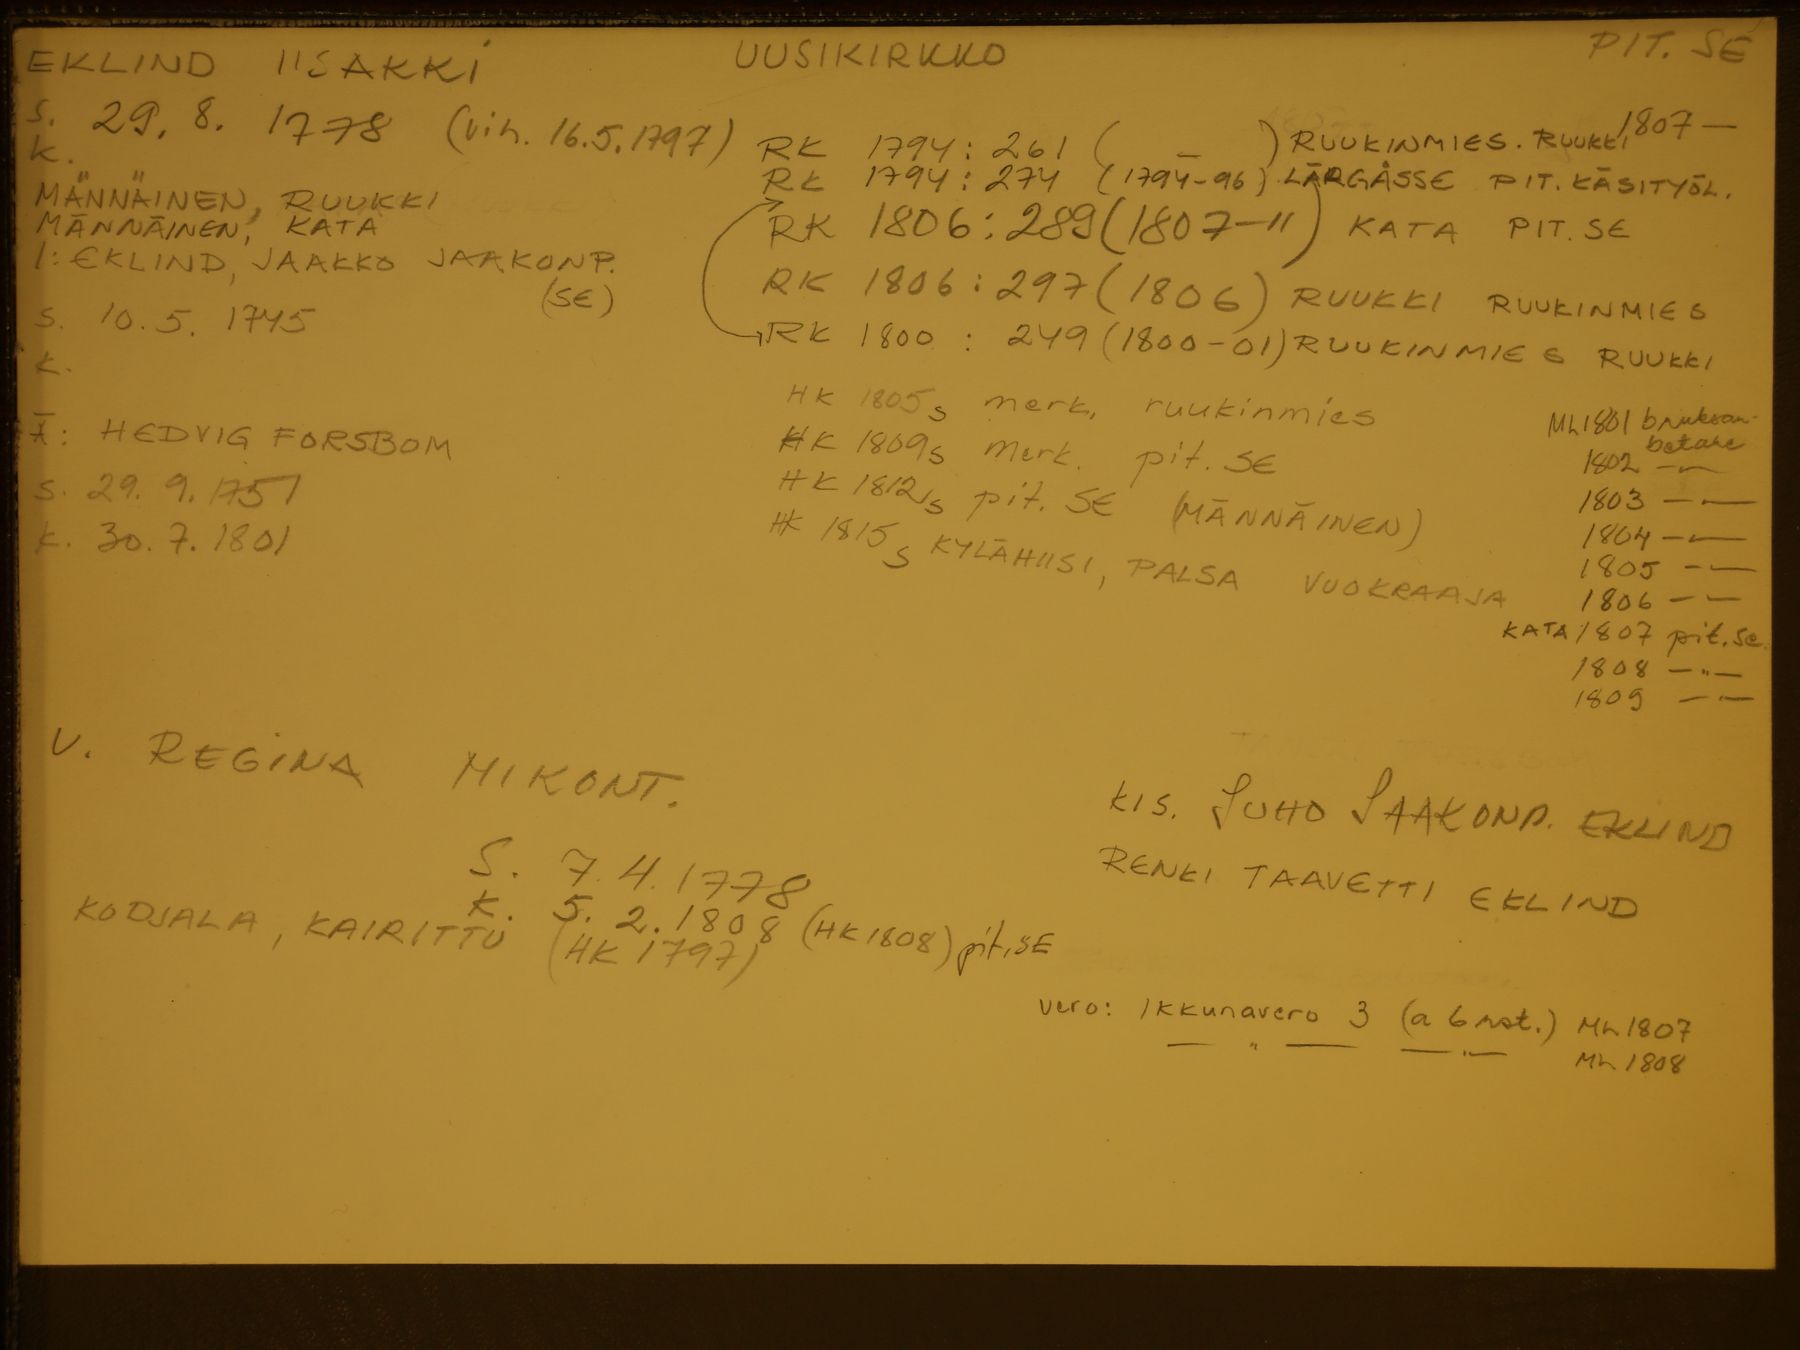 EKLIND IISAKKI
UUSIKIRKKO
PIT. SE
1807 —
S. 29. 8. 1778 (vih. 16.5.1797)
K.
MÄNNÄINEN, RUUKKI
MÄNNÄINEN, KATA
I: EKLIND, JAAKKO JAAKONP.
(SE)
S. 10. 5. 1745
K.
Ä: HEDVIG FORSBOM
S. 29. 9. 1751
K. 30. 7. 1801
RK 1794: 261 ( — ) RUUKINMIES. RUUKKI
RK 1794: 274 (1794-96) LÄRGÅSSE PIT. KÄSITYÖL.
RK 1806: 289 (1807-11) KATA PIT. SE
RK 1806: 297 (1806) RUUKKI RUUKINMIES
RK 1800 : 249 (1800-01) RUUKINMIES RUUKKI
HK 1805 s merk. ruukinmies
HK 1809 s merk. pit. SE
HK 1812 s pit. SE (MÄNNÄINEN)
HK 1815 s KYLÄHIISI, PALSA VUOKRAAJA
Mh 1801 bruksar-
betare
1802 —"—
1803 —"—
1804 —"—
1805 —"—
1806 —"—
KATA 1807 pit. se.
1808 —"—
1809 —"—
V. REGINA MIKONT.
S. 7. 4. 1778
K. 5. 2. 1808 (HK 1808) pit. SE
KODJALA, KAIRITTU (HK 1797)
KIS. JUHO JAAKONP. EKLIND
RENKI TAAVETTI EKLIND
vero: Ikkunavero 3 (a 6 rst.) Mh 1807
— " — — " — Mh 1808